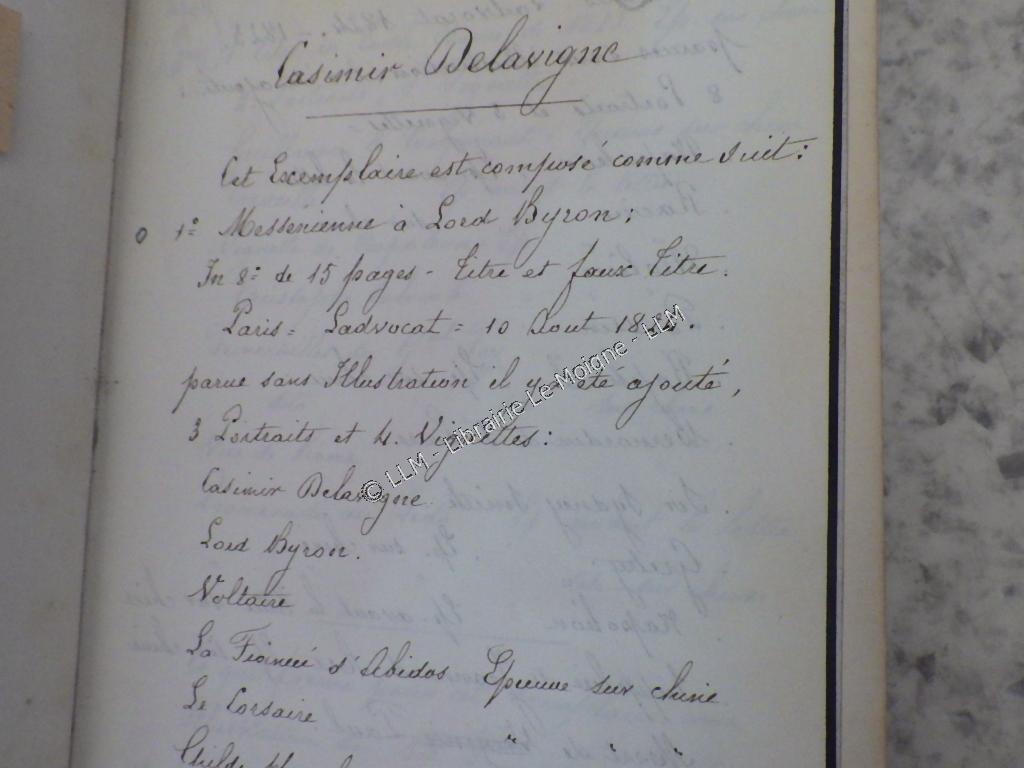 Casimir Delavigne
Cet Exemplaire est composé comme suit:
o 1º Messenienne à Lord Byron;
In 8º de 15 pages - Titre et faux Titre.
Paris = Ladvocat = 10 Aout
parue sans Illustration il y a été ajouté,
3 Portraits et 4 Vignettes:
Casimir Delavigne
Lord Byron.
Voltaire
La Fiancée d'Abidos Epreuve sur chine
Le Corsaire " " "
© LLM - Librairie Le Moigne - LLM